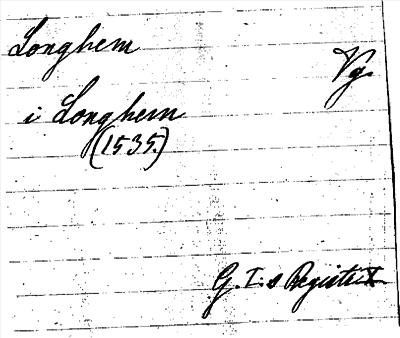 Longhem
Vg.
i Longhem
(1535.)
G. I:s Registr.